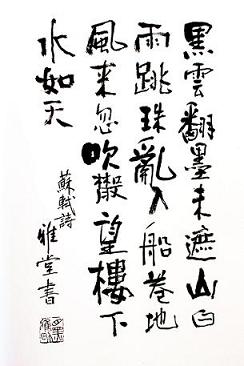 黑雲翻墨未遮山白
雨跳珠亂入船卷地
風来忽吹散望樓下
水如天
蘇軾詩
雅堂書